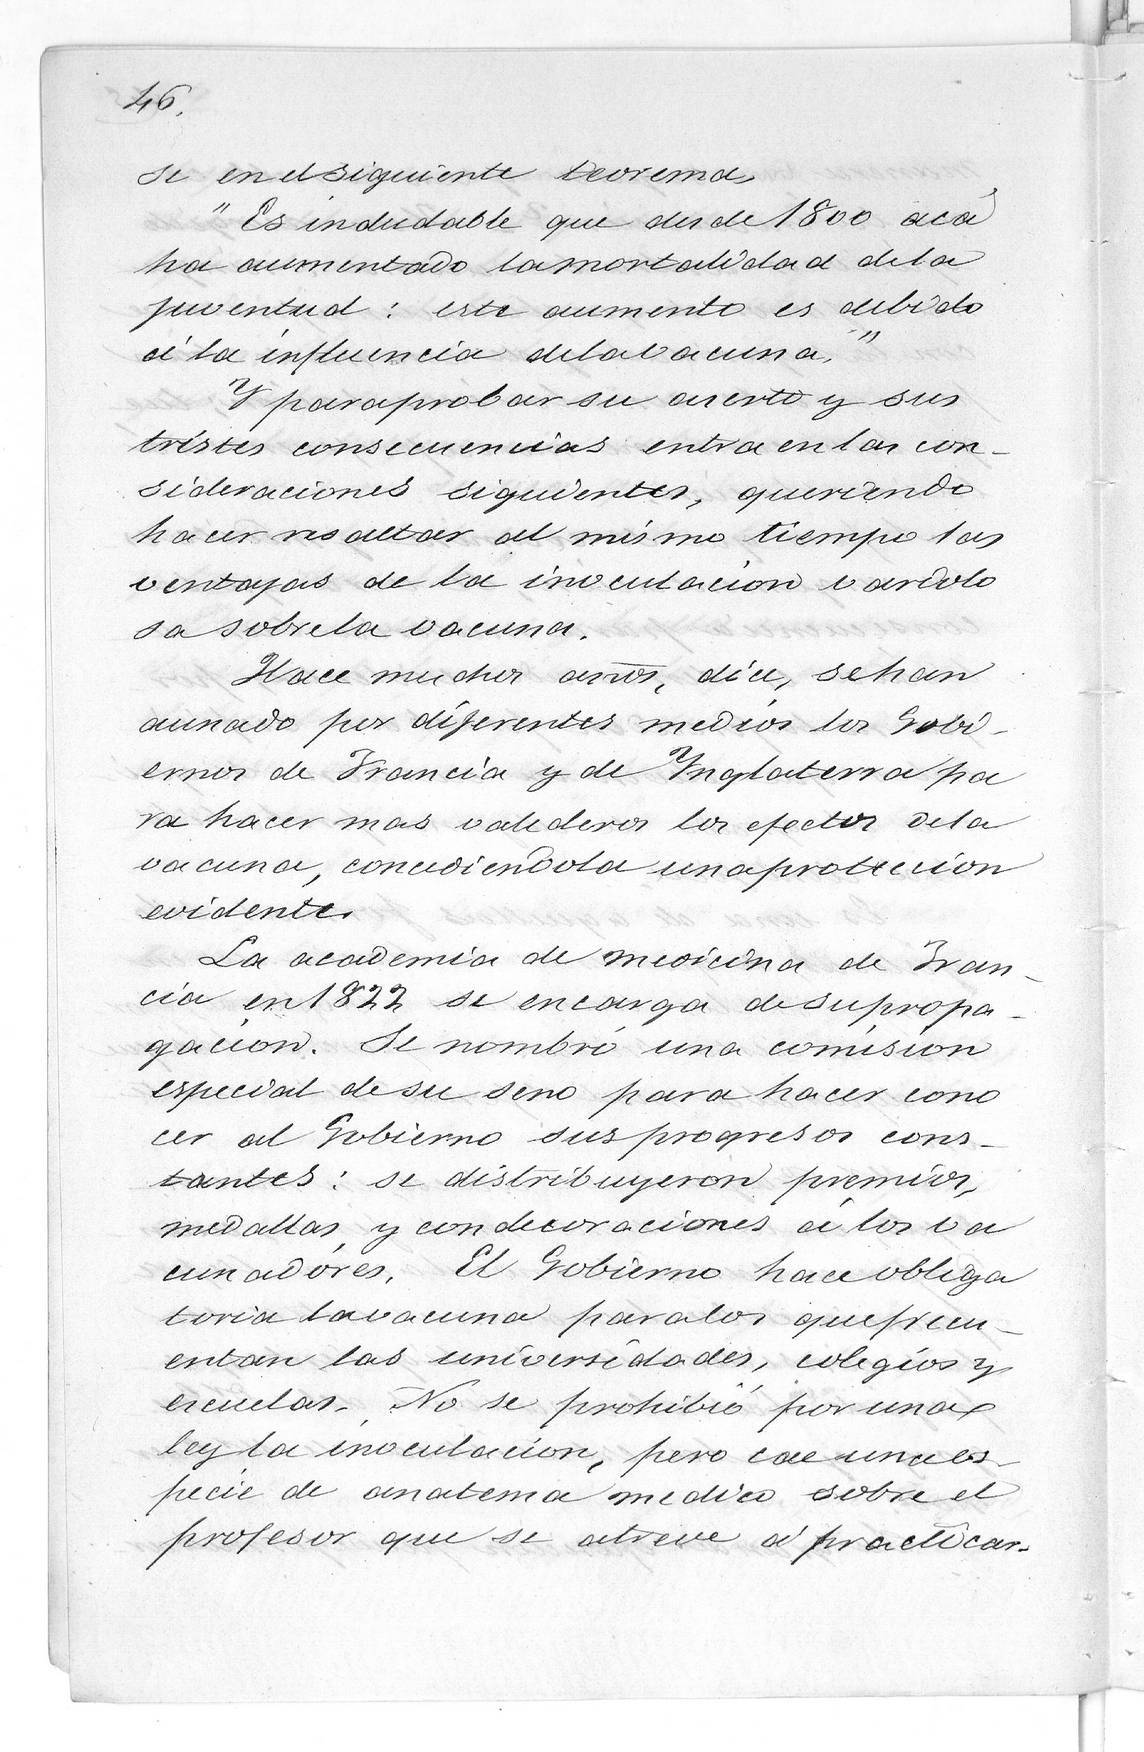 46.
se en el siguiente teorema,
"Es indudable que desde 1800 acá
ha aumentado la mortalidad de la
juventud: este aumento es debido
á la influencia de la vacuna."
Y para probar su aserto y sus
tristes consecuencias entra en las con-
sideraciones siguientes, queriendo
hacer resaltar al mismo tiempo las
ventajas de la inoculacion variolo
sa sobre la vacuna.
Hace muchos años, dice, se han
aunado por diferentes medios los Gobi-
ernos de Francia y de Ynglaterra pa
ra hacer mas valederos los efectos de la
vacuna, concediendola una proteccion
evidente.
La academia de medicina de Fran-
cia en 1822 se encarga de su propa-
gacion. Se nombró una comision
especial de su seno para hacer cono
cer al Gobierno sus progresos cons-
tantes: se distribuyeron premios,
medallas, y condecoraciones á los va
cunadores. El Gobierno hace obliga
toria la vacuna para los que frecu-
entan las universidades, colegios y
escuelas. No se prohibió por una
ley la inoculacion, pero cae una es-
pecie de anatema medico sobre el
profesor que se atreve á practicar-